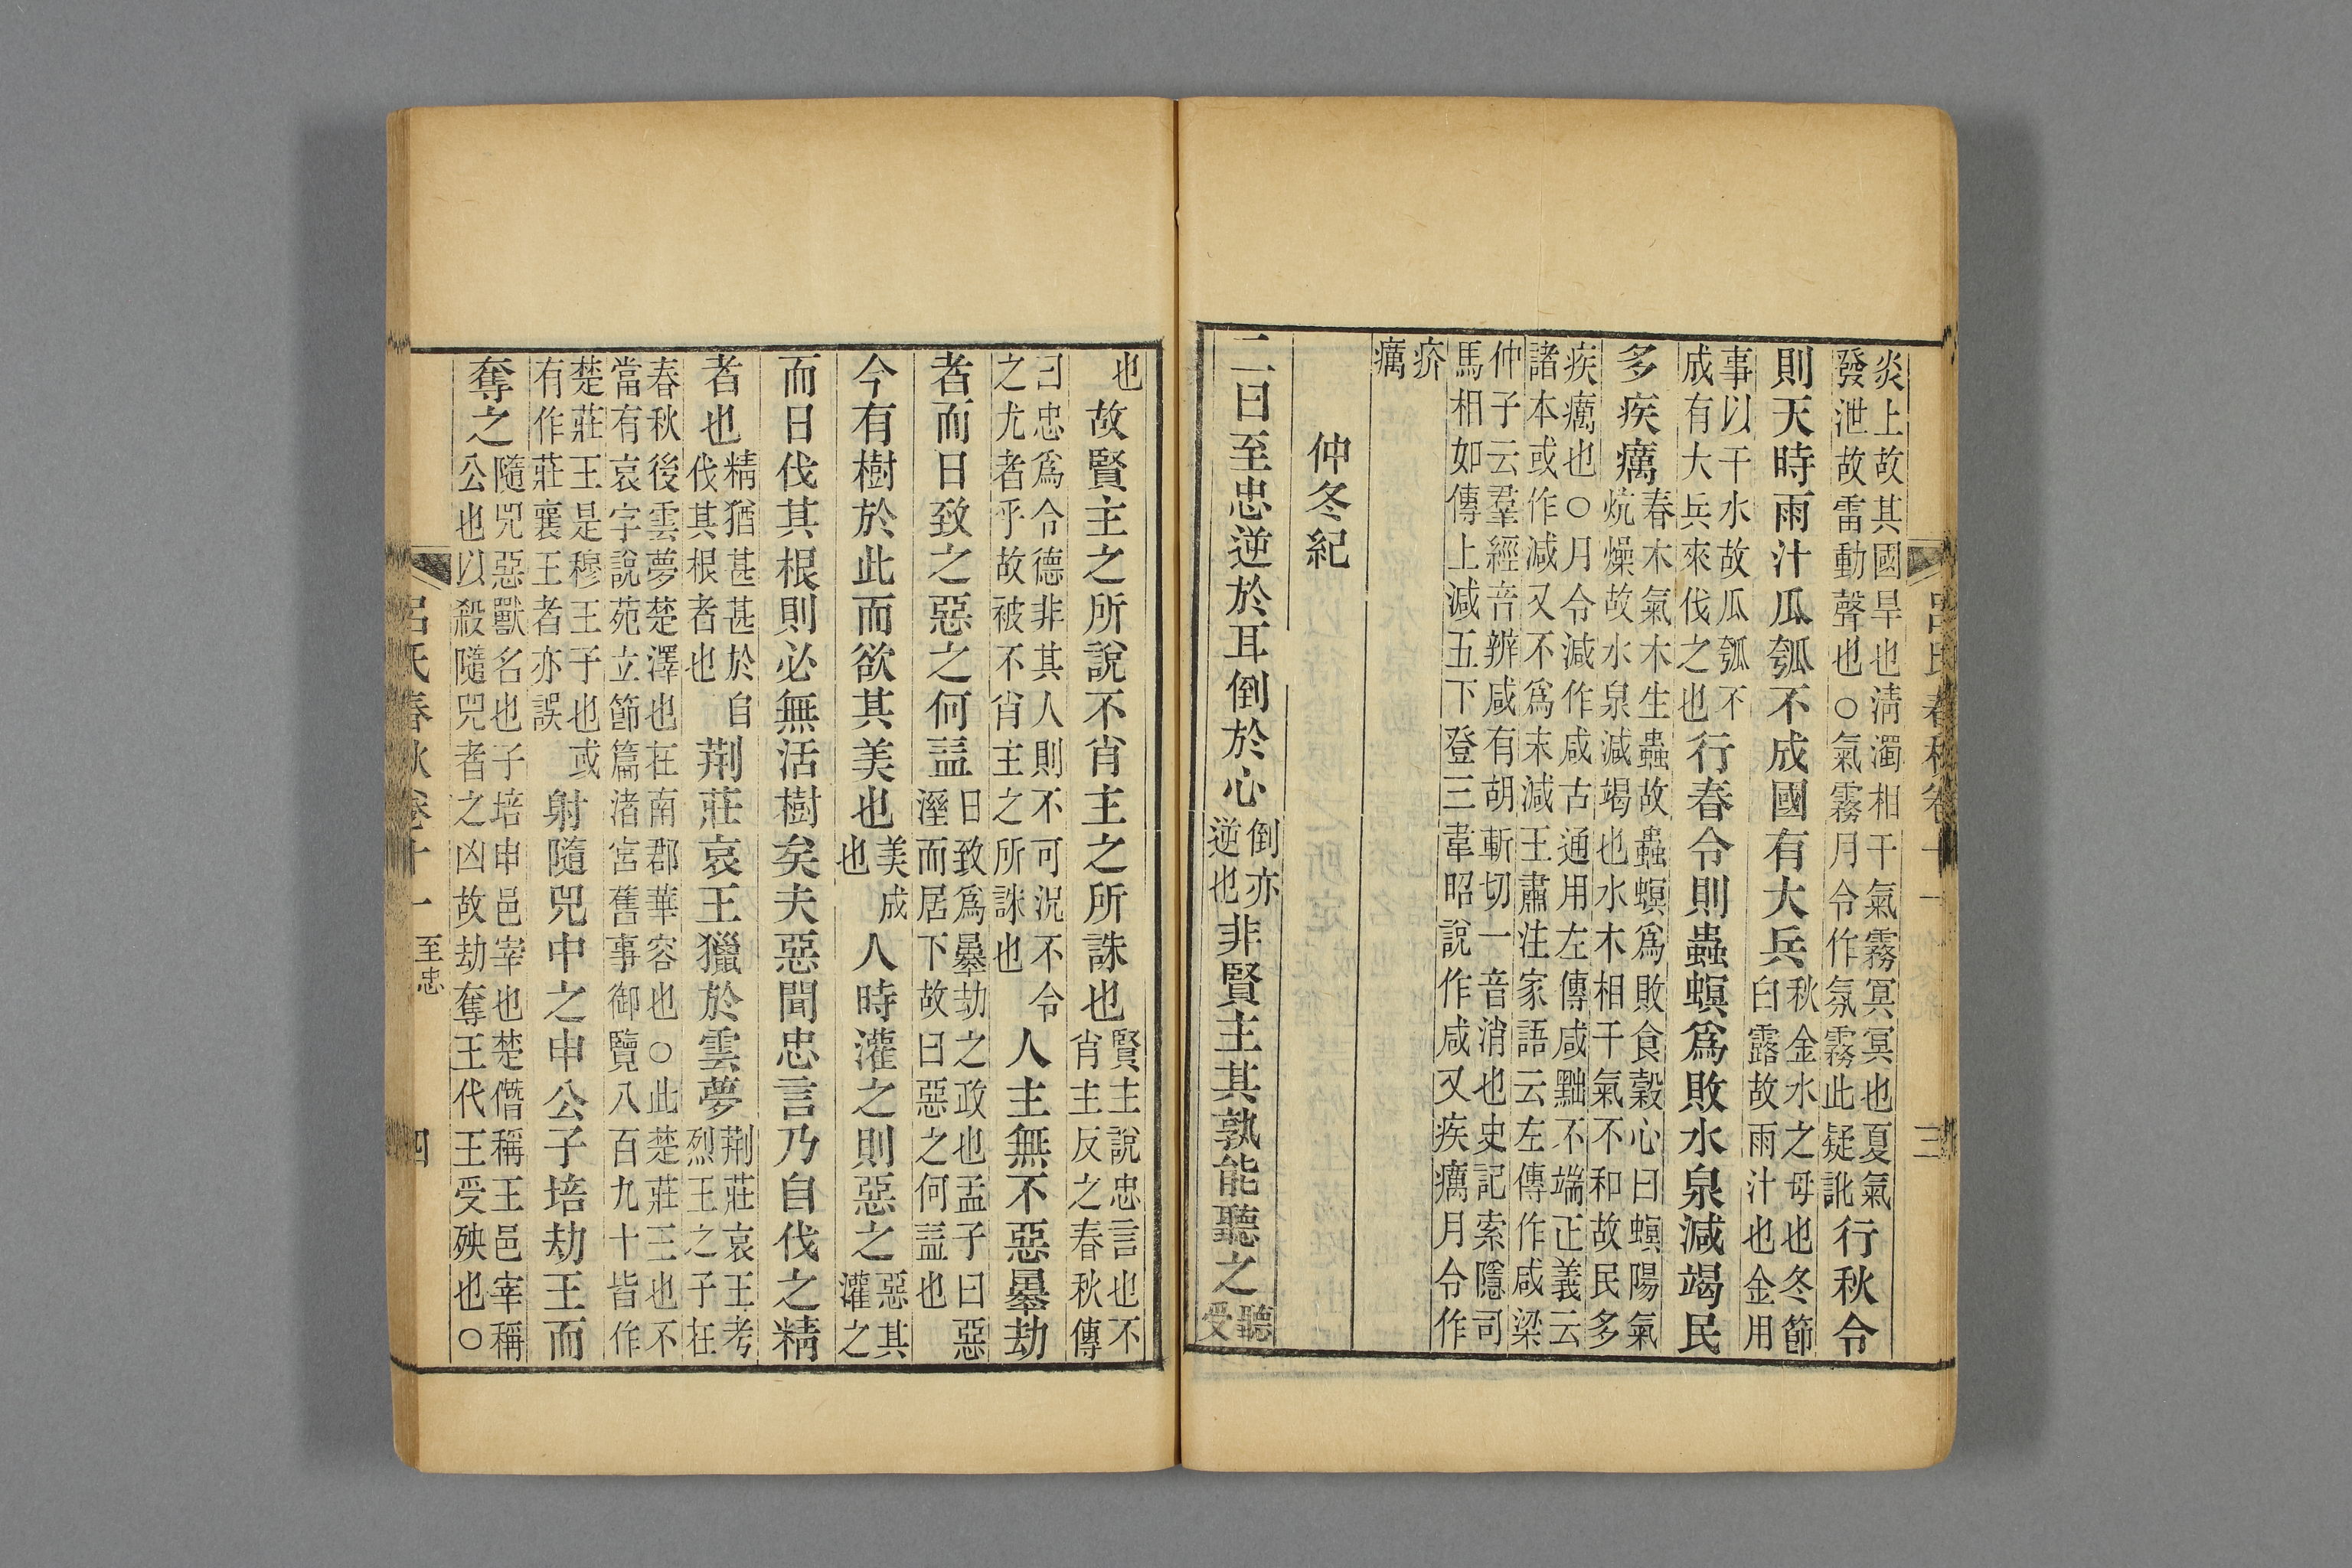 呂氏春秋卷十一　三
炎上故其國旱也淸濁相干氣霧冥冥也夏氣發泄故雷動聲也○氣霧月令作氛霧此疑訛行秋令
則天時雨汁瓜瓠不成國有大兵秋金水之母也冬節白露故雨汁也金用
事以干水故瓜瓠不成有大兵來伐之也行春令則蟲螟爲敗水泉減竭民
多疾癘春木氣木生蟲故蟲螟爲敗食穀心曰螟陽氣炕燥故水泉減竭也水木相干氣不和故民多
疾癘也○月令減作咸古通用左傳咸黜不端正義云諸本或作減又不爲末減王肅注家語云左傳作咸梁
仲子云羣經音辨咸有胡斬切一音消也史記索隱司馬相如傳上減五下登三韋昭說作咸又疾癘月令作
疥癘
仲冬紀
二曰至忠逆於耳倒於心倒亦逆也非賢主其孰能聽之聽受
也故賢主之所說不肖主之所誅也賢主說忠言也不肖主反之春秋傳
曰忠爲令德非其人則不可況不令之尤者乎故被不肖主之所誅也人主無不惡暴劫
者而日致之惡之何益日致爲暴劫之政也孟子曰惡溼而居下故曰惡之何益也
今有樹於此而欲其美也美成也人時灌之則惡之惡其灌之
而日伐其根則必無活樹矣夫惡聞忠言乃自伐之精
者也精猶甚甚於自伐其根者也荆莊哀王獵於雲夢荆莊哀王考烈王之子在
春秋後雲夢楚澤也在南郡華容也○此楚莊王也不當有哀字說苑立節篇渚宮舊事御覽八百九十皆作
楚莊王是穆王子也或有作莊襄王者亦誤射隨兕中之申公子培劫王而
奪之隨兕惡獸名也子培申邑宰也楚僭稱王邑宰稱公也以殺隨兕者之凶故劫奪王代王受殃也○
呂氏春秋卷十一　至忠　四